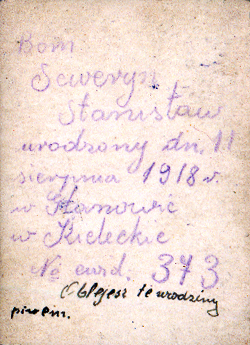 Bom
Seweryn
Stanisław
urodzony dn. 11
sierpnia 1918 r.
w
w Kieleckie
No ewid. 373
Oblejesz te urodziny
piwem.